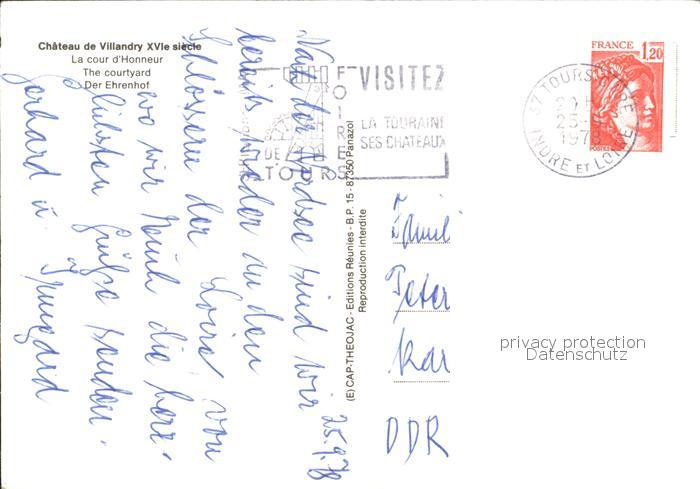 Château de Villandry XVIe siècle
La cour d'Honneur
The courtyard
Der Ehrenhof
FRANCE 1,20
POSTES
37 TOURS GARE
25-9
1978
INDRE ET LOIRE
VISITEZ
LA TOURAINE
SES CHATEAUX
FOIRE
DE
TOURS
(E) CAP-THEOJAC - Editions Réunies - B.P. 15 - 87350 Panazol
Reproduction interdite
25.9.78
Nach der Nordsee sind wir
bereits wieder zu den
Schlössern der Loire, von
wo wir Euch die herz-
lichsten Grüße senden.
Gerhard u. Irmgard
Peter
Kar
DDR
privacy protection
Datenschutz